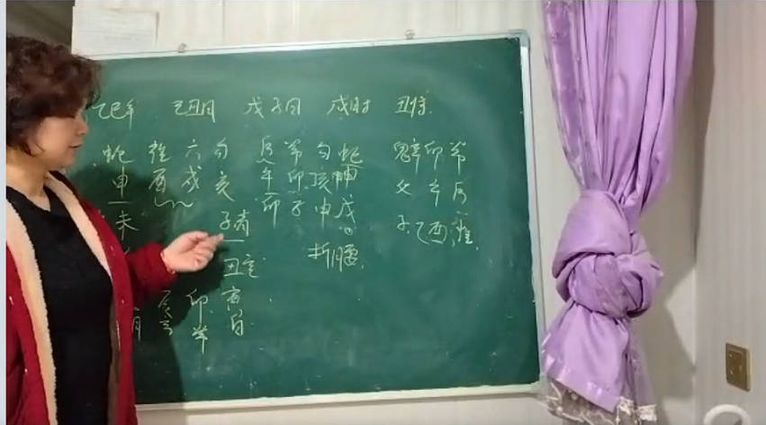 乙巳年 己丑月 戊子日 戌时 丑将
蛇 雀 六 勾 后 常 勾 蛇 鬼辛卯常
申 酉 戌 亥 午 卯 亥 申 父 午 后
未 子青 卯 子 申 戊 子 乙酉 雀
丑空 折腰
卯 寅
常 白